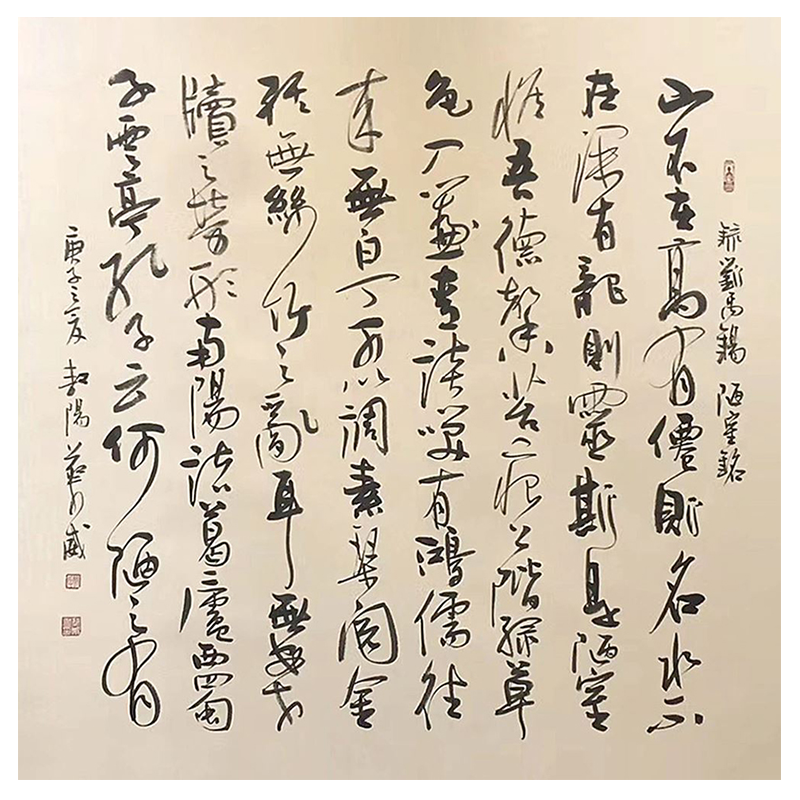 錄劉禹錫陋室銘
山不在高有僊則名水不
在深有龍則靈斯是陋室
惟吾德馨苔痕上階綠草
色入簾青談笑有鴻儒往
來無白丁可以調素琴閱金
經無絲竹之亂耳無案
牘之勞形南陽諸葛廬西蜀
子雲亭孔子云何陋之有
庚子之夏